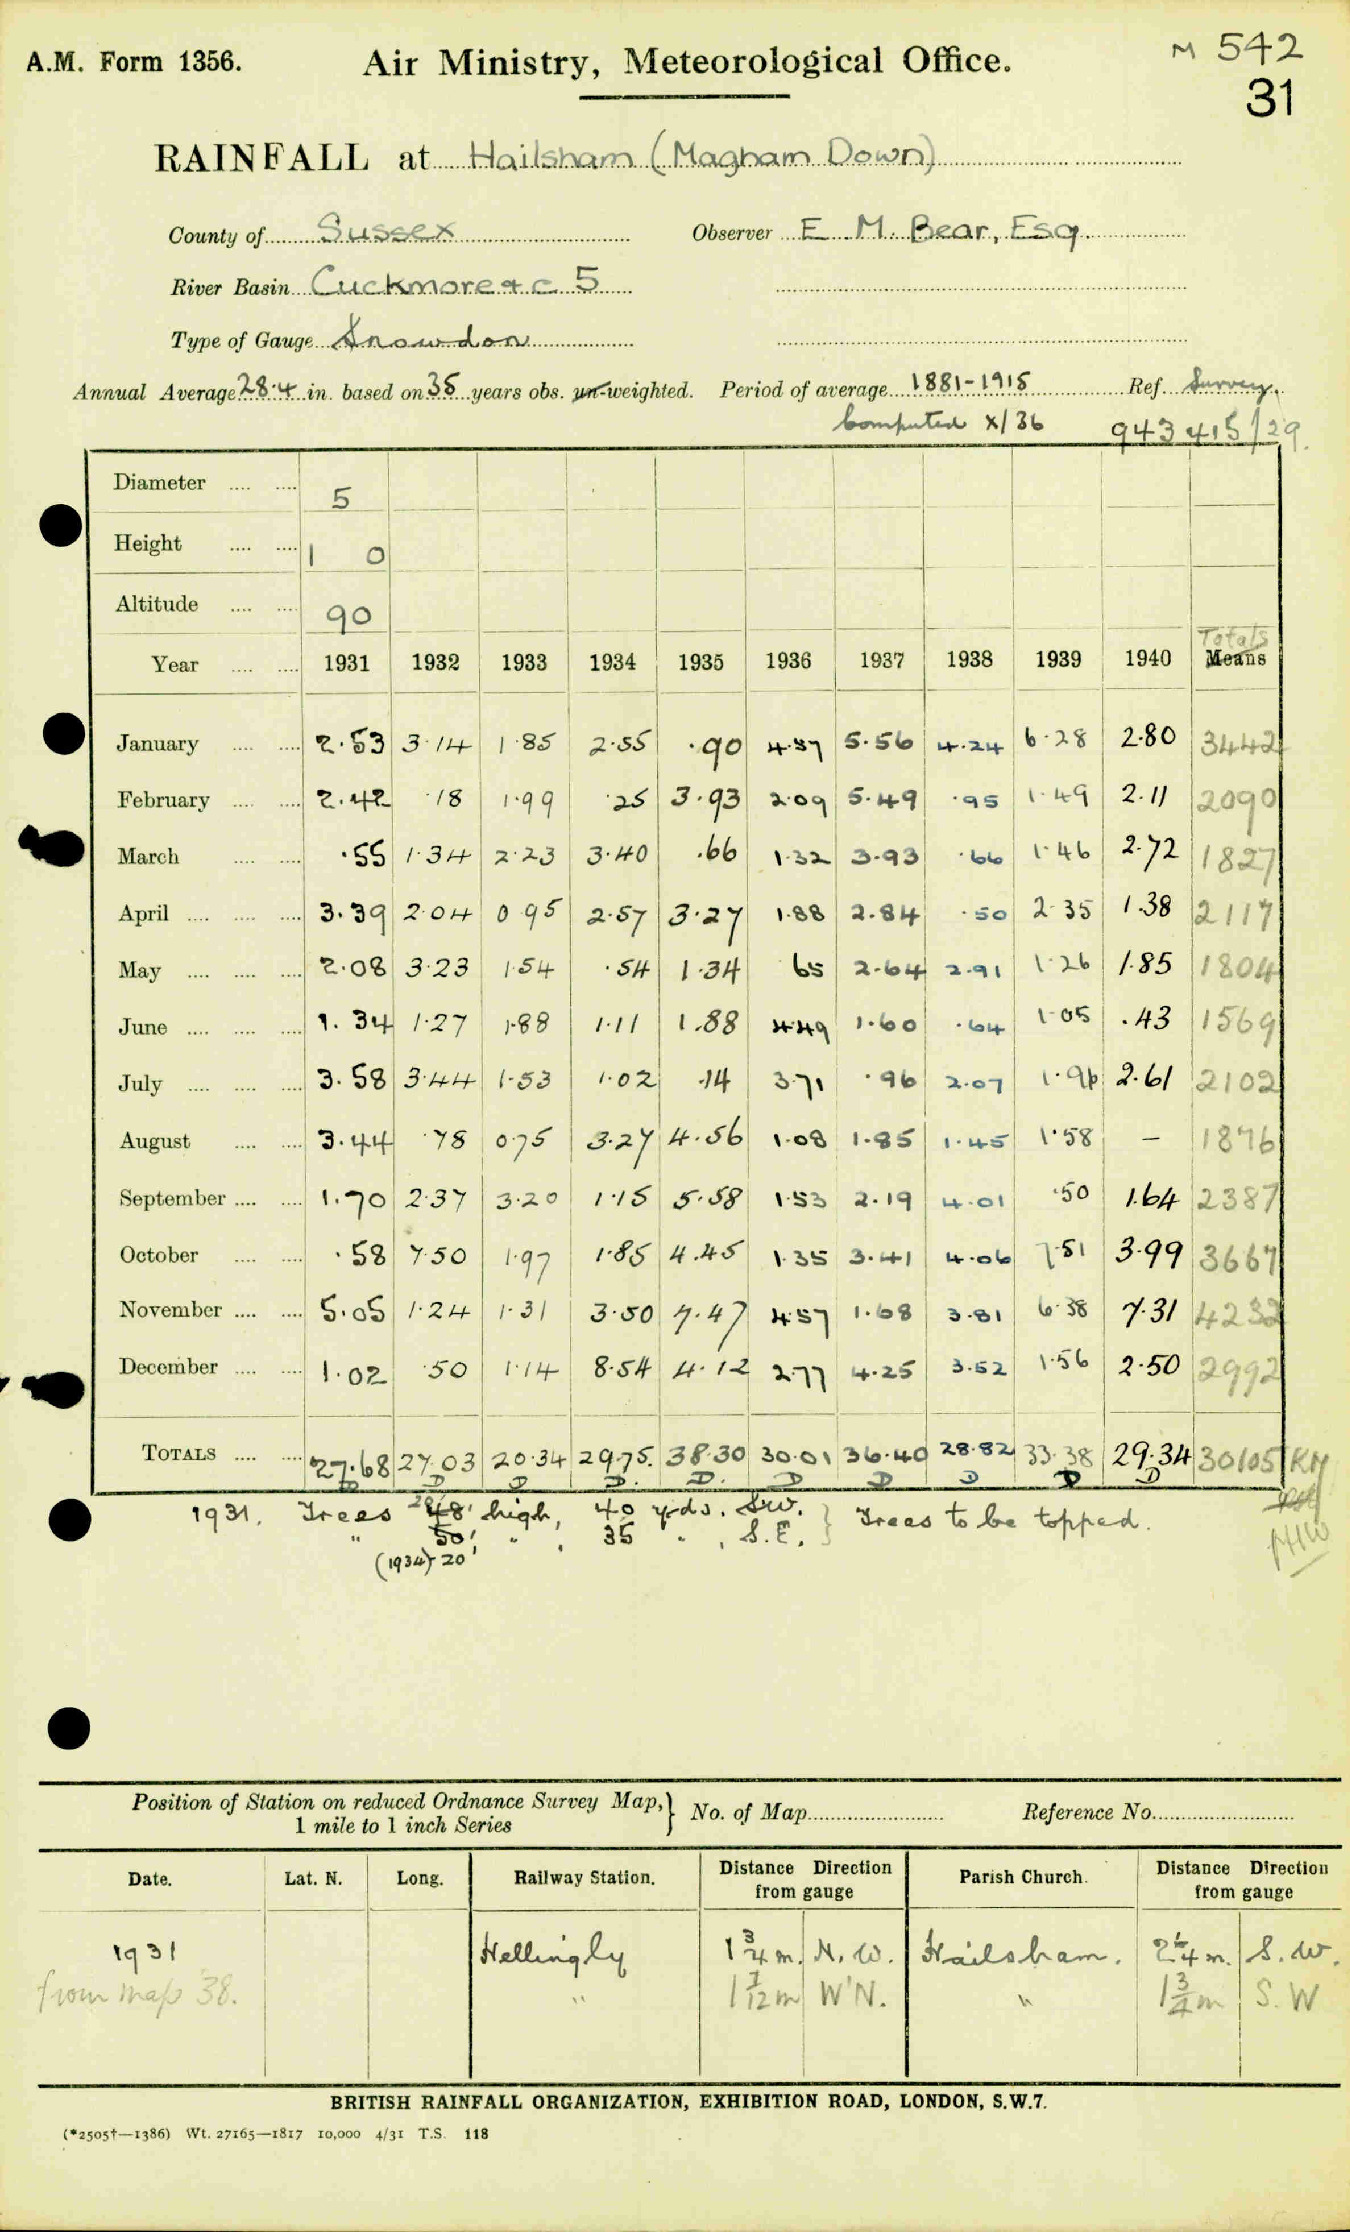 A.M. Form 1356. Air Ministry, Meteorological Office. M 542
31
RAINFALL at Hailsham (Magham Down)
County of Sussex Observer E. M. Bear, Esq.
River Basin Cuckmore & c 5
Type of Gauge Snowdon
Annual Average 28.4 in. based on 35 years obs. un-weighted. Period of average 1881-1915 Ref. Survey.
Computed X/36 943415/29.
Diameter .... .... 5
Height .... .... 1 0
Altitude .... .... 90
Totals
Year .... .... 1931 1932 1933 1934 1935 1936 1937 1938 1939 1940 Means
January .... .... 2.53 3.14 1.85 2.55 .90 4.57 5.56 4.24 6.28 2.80 3442
February .... .... 2.42 .18 1.99 .25 3.93 2.09 5.49 .95 1.49 2.11 2090
March .... .... .55 1.34 2.23 3.40 .66 1.32 3.93 .66 1.46 2.72 1827
April .... .... .... 3.39 2.04 0.95 2.57 3.27 1.88 2.84 .50 2.35 1.38 2117
May .... .... .... 2.08 3.23 1.54 .54 1.34 65 2.64 2.91 1.26 1.85 1804
June .... .... .... 1.34 1.27 1.88 1.11 1.88 4.49 1.60 .64 1.05 .43 1569
July .... .... .... 3.58 3.44 1.53 1.02 .14 3.71 .96 2.07 1.96 2.61 2102
August .... .... 3.44 .78 0.75 3.27 4.56 1.08 1.85 1.45 1.58 – 1876
September .... .... 1.70 2.37 3.20 1.15 5.58 1.53 2.19 4.01 .50 1.64 2387
October .... .... .58 7.50 1.97 1.85 4.45 1.35 3.41 4.06 7.51 3.99 3667
November .... .... 5.05 1.24 1.31 3.50 7.47 4.57 1.68 3.81 6.38 7.31 4232
December .... .... 1.02 .50 1.14 8.54 4.12 2.77 4.25 3.52 1.56 2.50 2992
TOTALS .... .... 27.68 27.03 20.34 29.75. 38.30 30.01 36.40 28.82 33.38 29.34 30105
D D D D. D. D D D D D
1931. Trees 48' high, 40 yds. SW. } Trees to be topped.
" 50' " , 35 " , S.E. }
(1934) 20'
Position of Station on reduced Ordnance Survey Map, } No. of Map Reference No.
1 mile to 1 inch Series
Date. Lat. N. Long. Railway Station. Distance Direction from gauge Parish Church. Distance Direction from gauge
1931 Hellingly 1 3/4 m. N. W. Hailsham. 2 1/4 m. S. W.
from map '38. " 1 7/12 m W'N. " 1 3/4 m S. W
BRITISH RAINFALL ORGANIZATION, EXHIBITION ROAD, LONDON, S.W.7.
(*2505†—1386) Wt. 27165—1817 10,000 4/31 T.S. 118